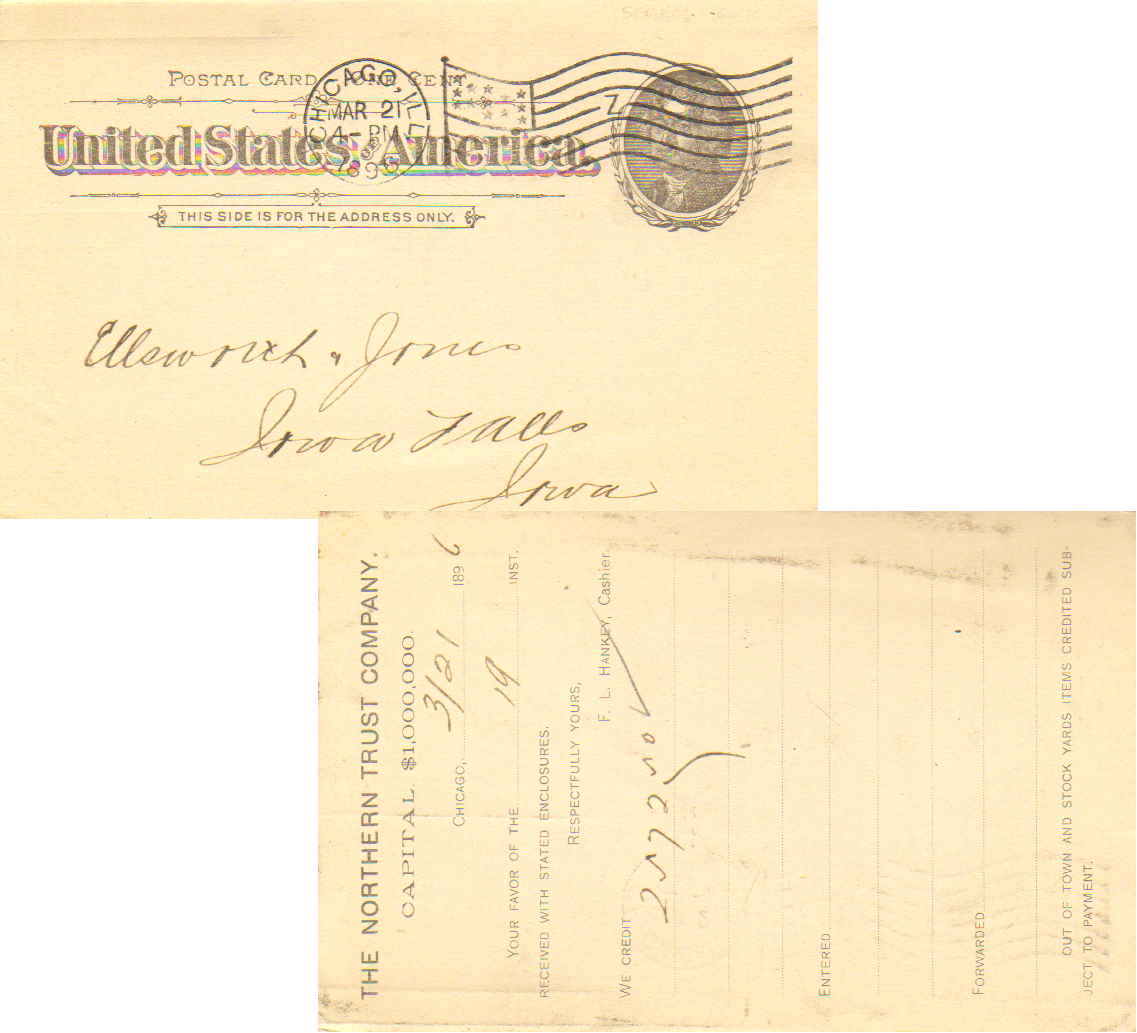 POSTAL CARD ONE CENT.
CHICAGO, ILL.
MAR 21
4-PM
Z
United States America.
THIS SIDE IS FOR THE ADDRESS ONLY.
Ellsworth & Jones
Iowa Falls
Iowa
THE NORTHERN TRUST COMPANY.
CAPITAL. $1,000,000.
CHICAGO, 3/21 1896
YOUR FAVOR OF THE 19 INST.
RECEIVED WITH STATED ENCLOSURES.
RESPECTFULLY YOURS,
F. L. HANKEY, Cashier
WE CREDIT
ENTERED
FORWARDED
OUT OF TOWN AND STOCK YARDS ITEMS CREDITED SUB-
JECT TO PAYMENT.